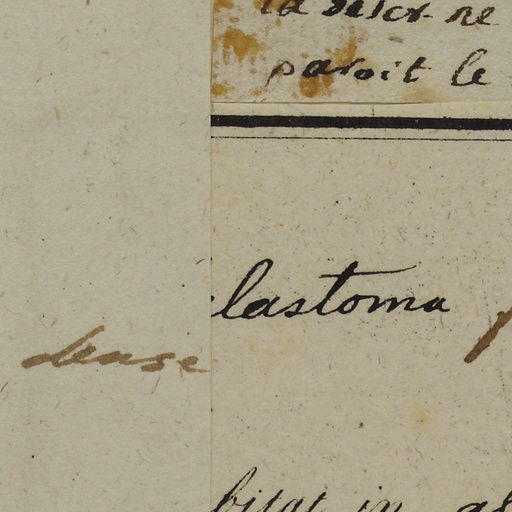 la descr ne
paroit le
lastoma
dense
bitat in